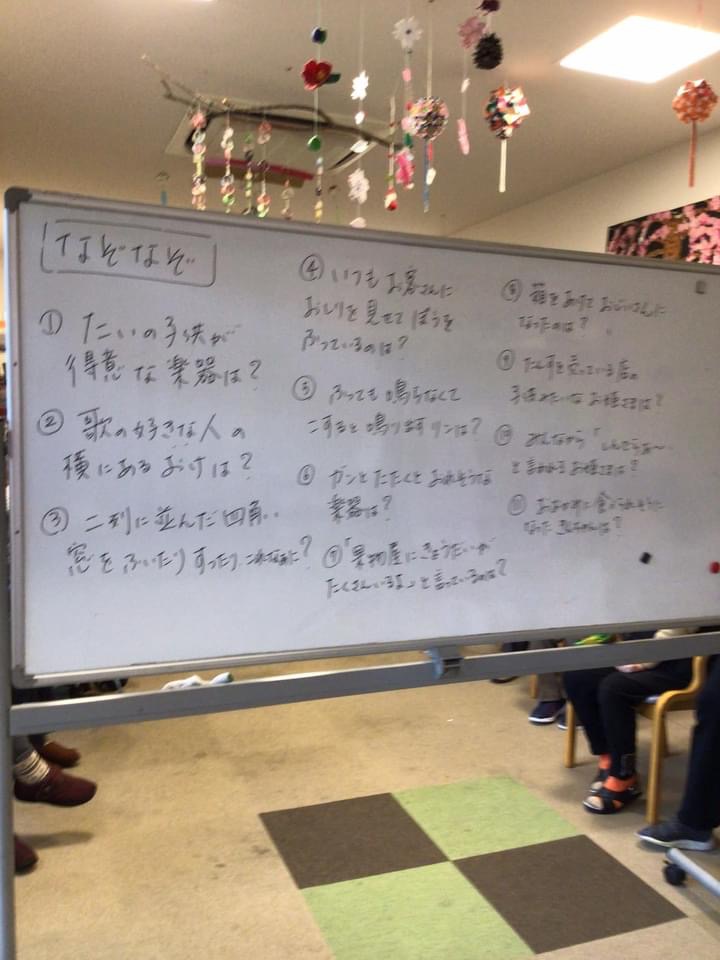 なぞなぞ
① たいの子供が
得意な楽器は?
② 歌の好きな人の
横にあるおけは?
③ 二列に並んだ四角い
窓をふいたりすったり、これなあに?
④ いつもお客さんに
おしりを見せてぼうを
ふっているのは?
⑤ ふっても鳴らなくて
こすると鳴り出すリンは?
⑥ ガンとたたくとおれそうな
楽器は?
⑦「果物屋にきょうだいが
たくさんいるよ」と言っているのは?
⑧ 箱をあけておじいさんに
なったのは?
⑨ たんすを売っている店の
子供みたいなお姫さまは?
⑩ みんなから「しんでらぁ〜
と言われるお姫さまは?
⑪ おおかみに食べられそうに
なった ちゃんは?